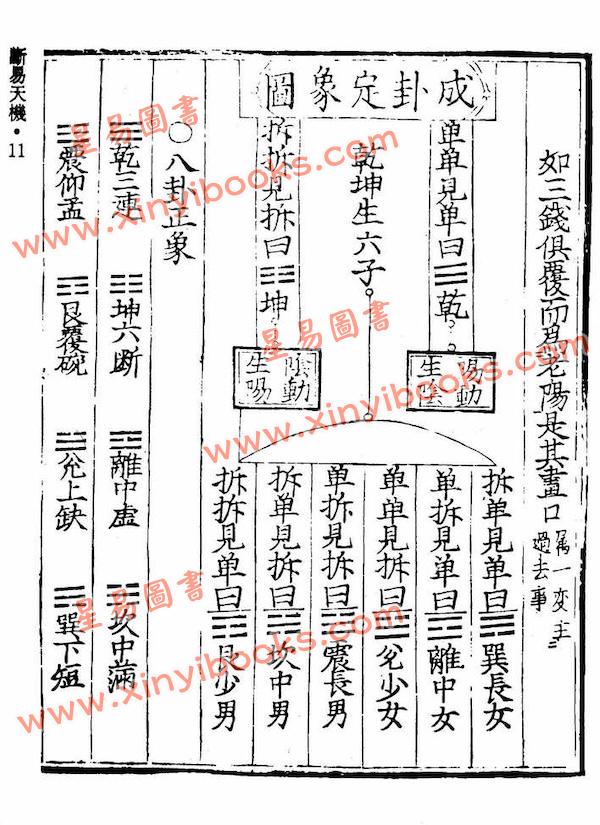 斷易天機・11
如三錢俱覆而為老陽是其畫口
屬一变主
過去事
成卦定象圖
单单見单曰☰乾
陽動
生陰
乾坤生六子。
拆拆見拆曰☷坤
陰動
生陽
拆单見单曰☴巽長女
单拆見单曰☲離中女
单单見拆曰☱兌少女
单拆見拆曰☳震長男
拆单見拆曰☵坎中男
拆拆見单曰☶艮少男
○八卦正象
☰乾三連 ☷坤六断 ☲離中虛 ☵坎中滿
☳震仰孟 ☶艮覆碗 ☱兌上缺 ☴巽下短
星易圖書
www.xinyibooks.com
星易圖書
www.xinyibooks.com
星易圖書
www.xinyibooks.com
星易圖書
www.xinyibooks.com